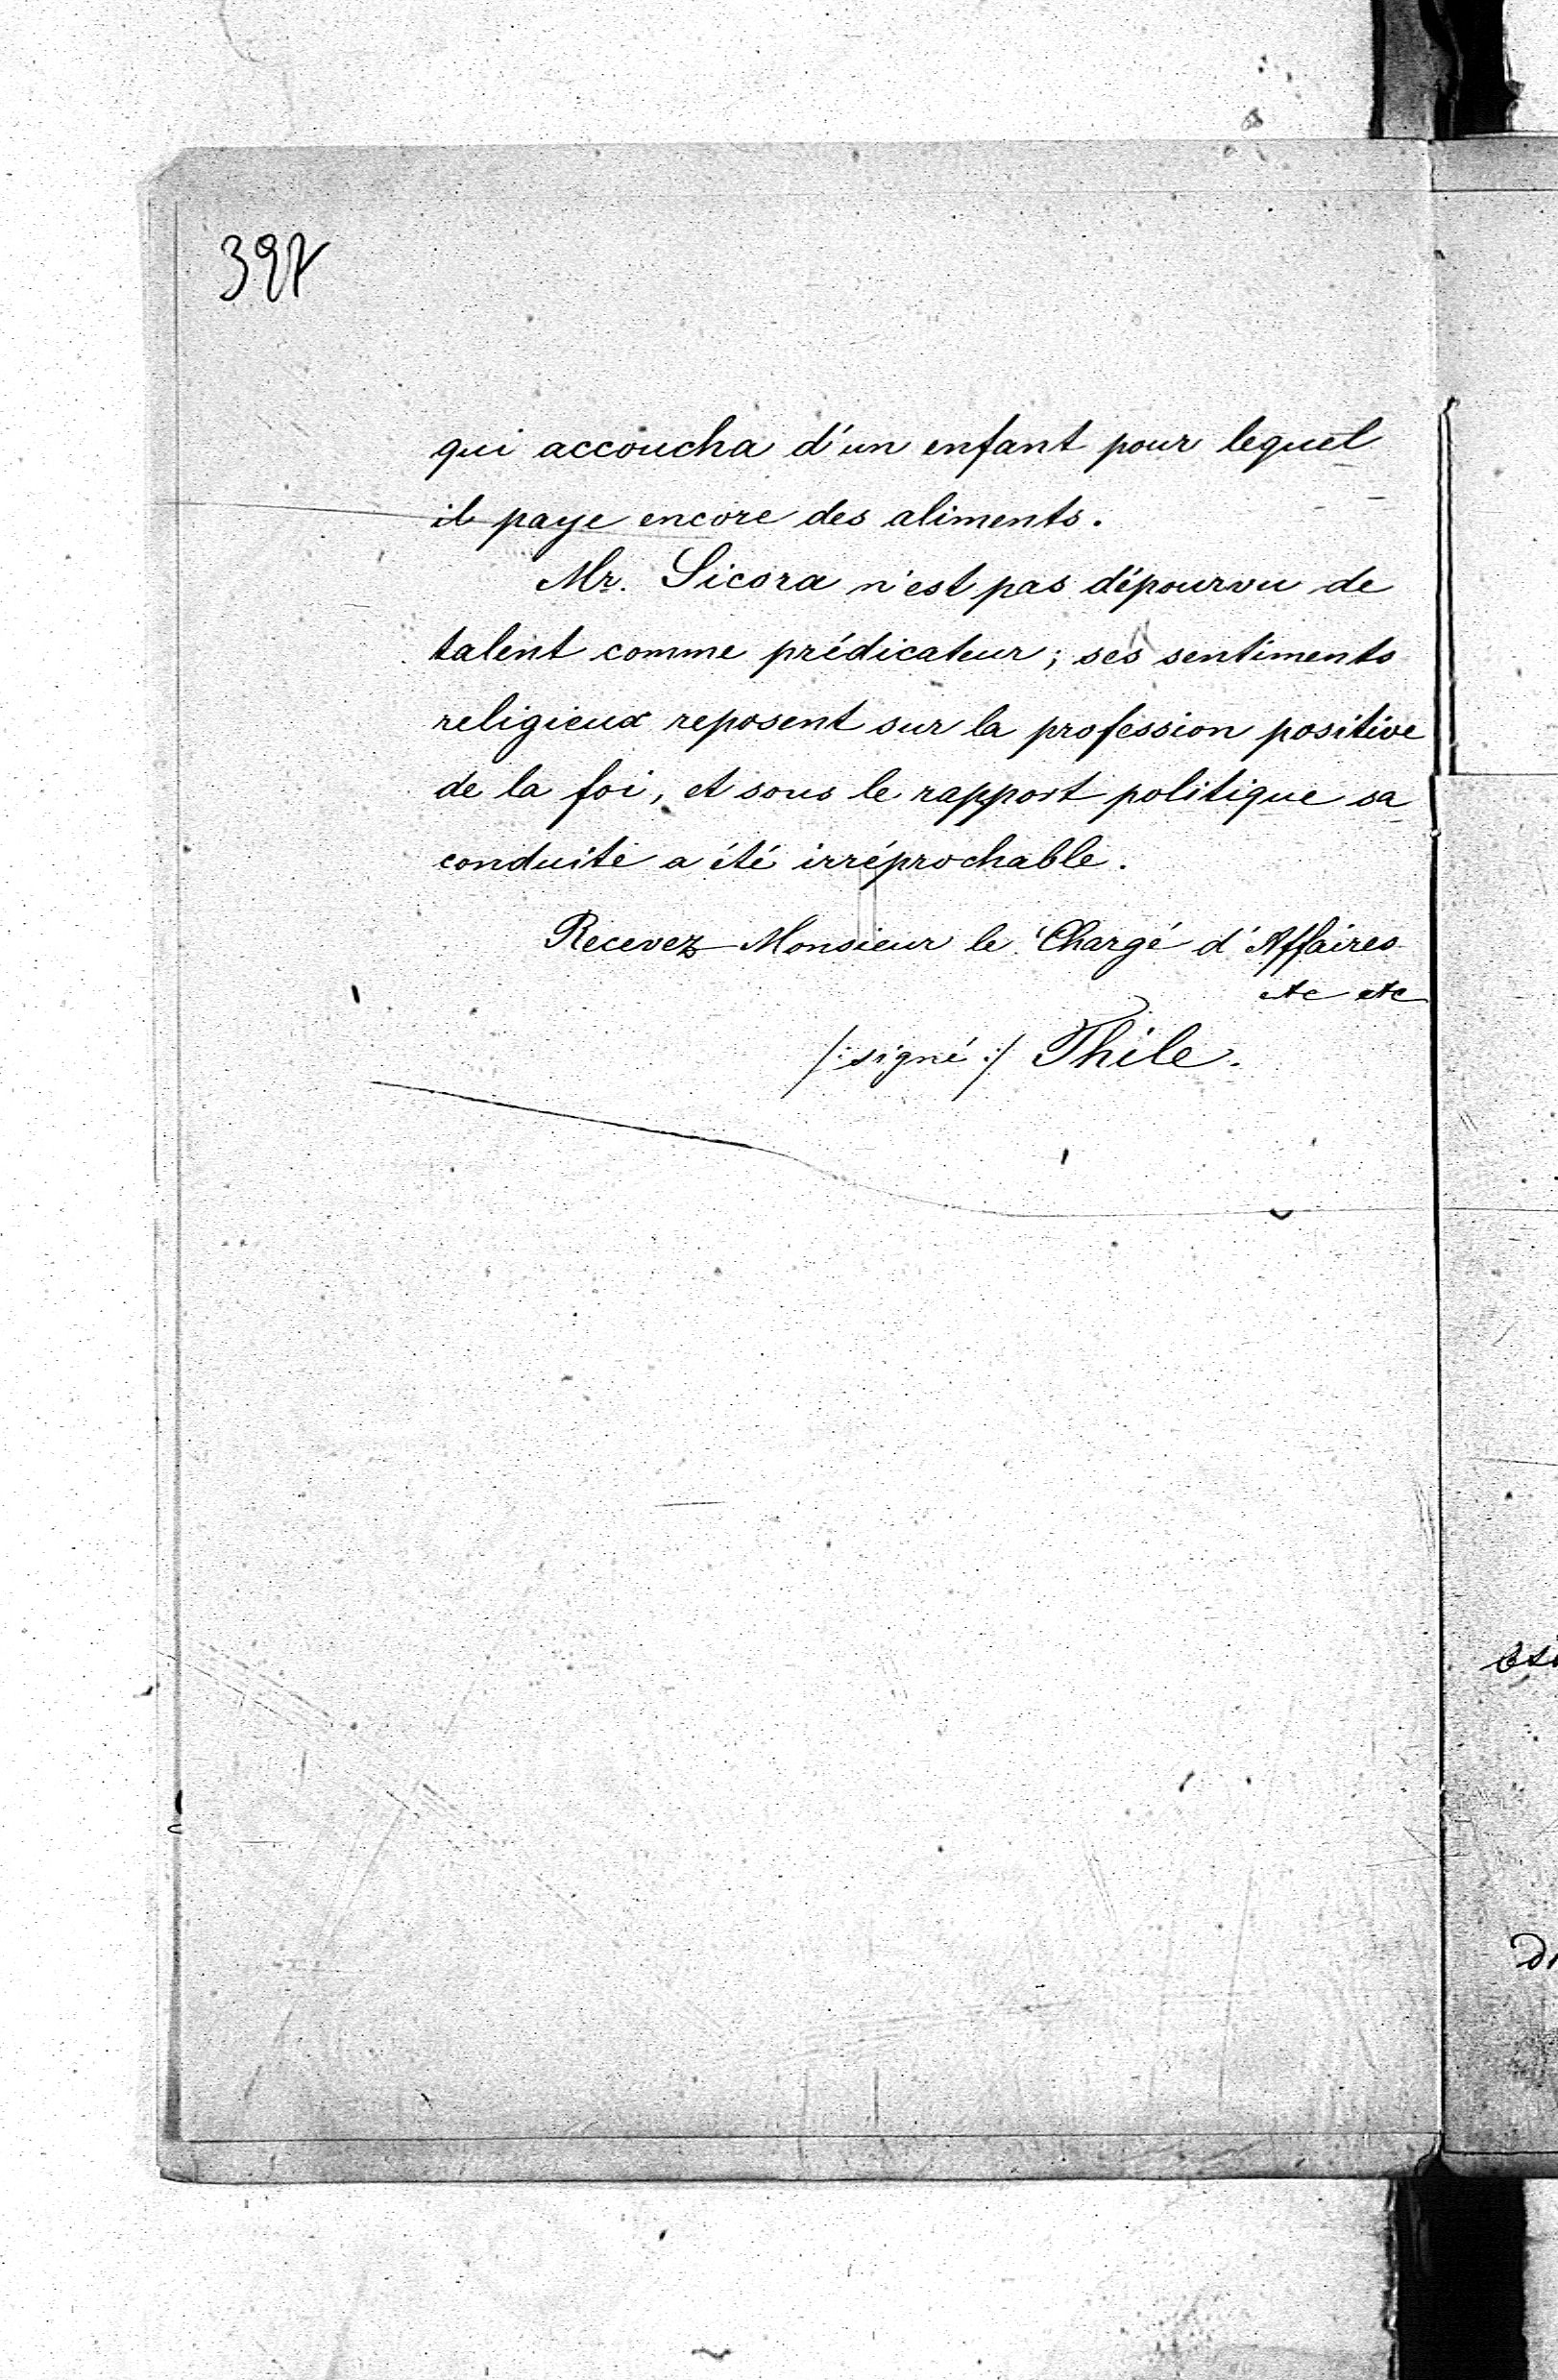 397
qui accoucha d'un enfant pour lequel
il paye encore des aliments.
Mr. Sicora n'est pas dépourvu de
talent comme prédicateur; ses sentiments
religieux reposent sur la profession positive
de la foi, et sous le rapport politique sa
conduite a été irréprochable.
Recevez Monsieur le Chargé d'Affaires
etc etc
/: signé :/ Thile.